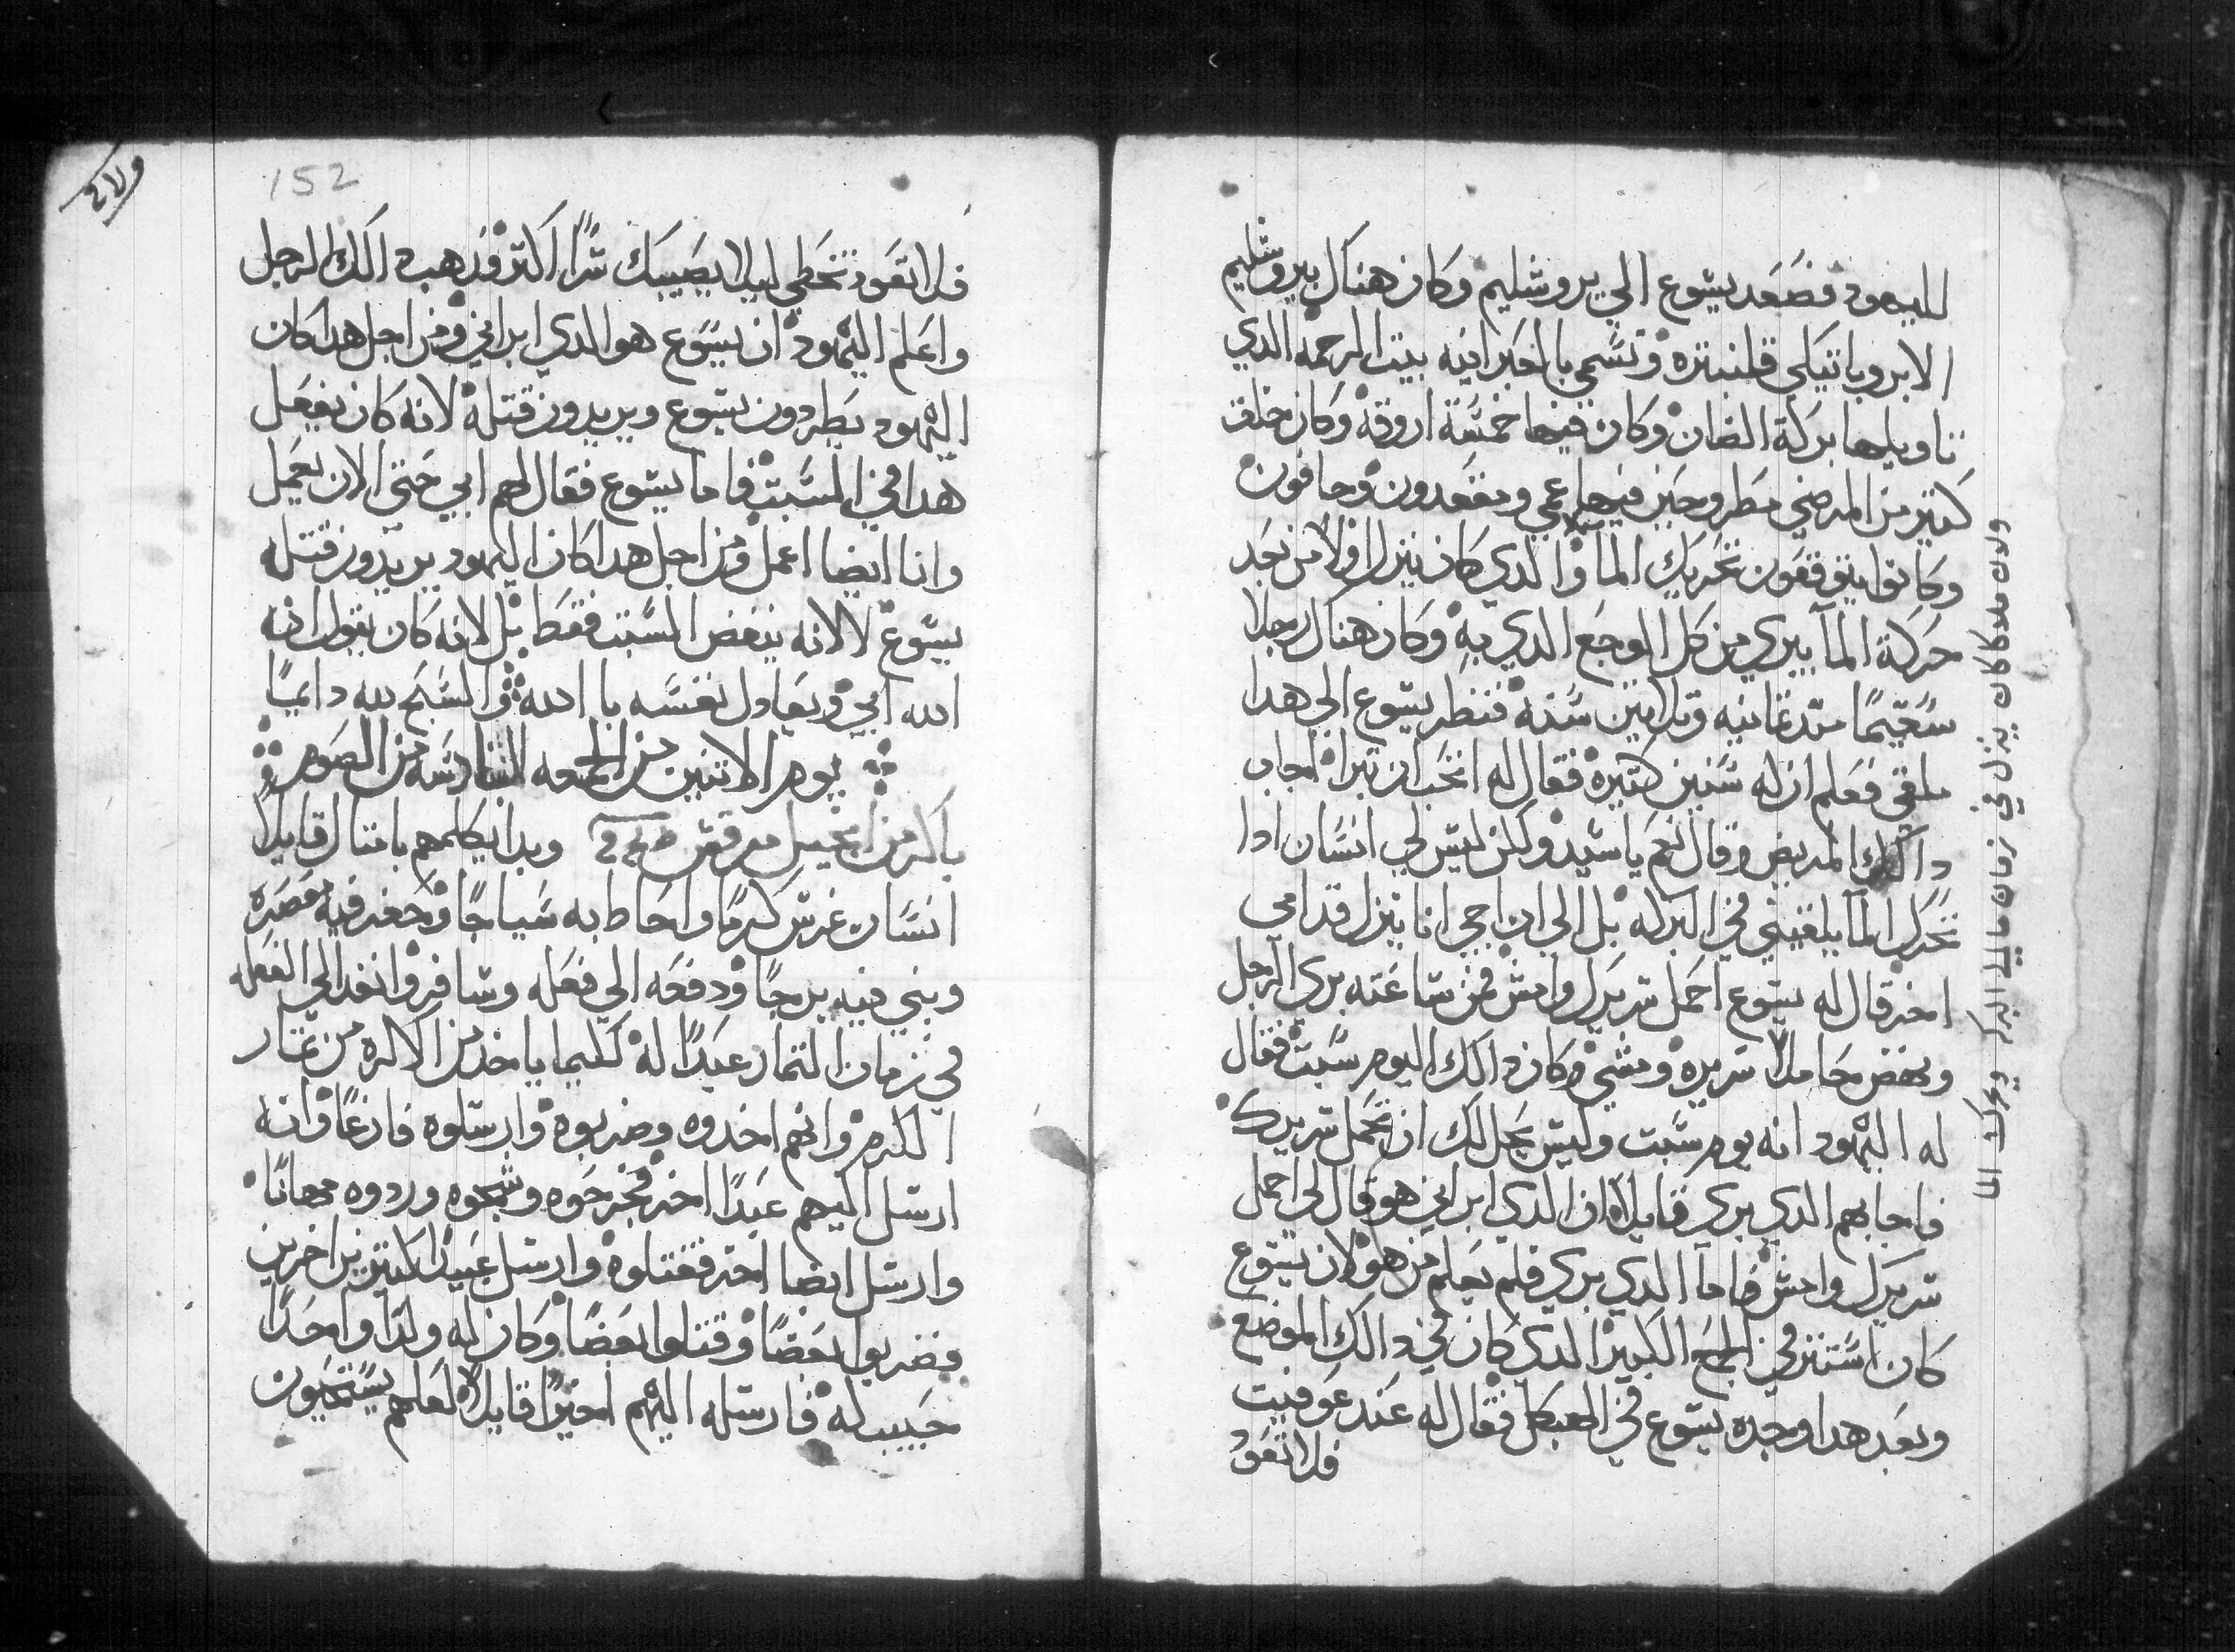 لليهود فصعد يسوع الي يروشليم وكان هناك بيروشليم
الابروباتيكي قلنبتره وتسمي بالعبرانيه بيت الرحمه الدي
تاويلها بركة الضان وكان فيها خمسة اروقه وكان خلف
كتير من المرضي مطروحين فيها عمي ومقعدون وجافون
وكانوا يتوقعون تحريك الما والدي كان ينزل اولا من بعد
حركة المآ يبري من كل الوجع الدي به وكان هناك رجلا
سقيما مند تمانيه وتلاتين سنه فنظر يسوع الي هدا
ملقي فعلم ان له سنين كتيره فقال له اتحب ان تبرا اجاب
دالك المريض وقال نعم يا سيد ولكن ليس لي انسان ادا
تحرك المآ يلقيني في البركه بل الي ان اجي انا ينزل قدامي
اخر قال له يسوع احمل سريرك وامش فمن ساعته بري الرجل
ونهض حاملا سريره ومشي وكان دالك اليوم سبت فقال
له اليهود انه يوم سبت وليس يحل لك ان تحمل سريرك
فاجابهم الدي بري قايلا ان الدي ابراني هو قال لي احمل
سريرك وامش فاما الدي بري فلم يعلم من هو لان يسوع
كان استتر في الجمع الكبير الدي كان في دالك الموضع
وبعد هدا وجده يسوع في الهيكل فقال له عند عوفيت
فلا تعود
ولان ملاكا كان ينزل في زمان ما الي البركه ويحرك الما
152
فلا تعود تخطي ليلا يصيبك شرا اكتر فدهب دالك الرجل
واعلم اليهود ان يسوع هو الدي ابراني ومن اجل هدا كان
اليهود يطردون يسوع ويريدون قتله لانه كان يفعل
هدا في السبت فاما يسوع فقال لهم ابي حتي الان يعمل
وانا ايضا اعمل ومن اجل هدا كان اليهود يريدون قتله
يسوع لا لانه ينقض السبت فقط بل لانه كان يقول ان
الله ابي ويعادل نفسه با الله والسبح لله دايما
يوم الاتنين من الجمعه السادسه من الصوم
باكر من انجيل مرقس وبدا يكلمهم بامتال قايلا
انسان غرس كرما واحاط به سياجا وحفر فيه معصره
وبني فيه برجا ودفعه الي فعله وسافر وانفد الي الفعله
في زمان التمار عبدا له كليما ياخد من الاكره من تمار
الكرم وانهم اخدوه وضربوه وارسلوه فارغا وانه
ارسل اليهم عبدا اخر فجرحوه وشجوه وردوه مهانا
وارسل ايضا اخر فقتلوه وارسل عبيدا كتيرين اخرين
فضربوا بعضا وقتلوا بعضا وكان له ولدا واحدا
حبيب له فارسله اليهم اخيرا قايلا لعلهم يستحيون